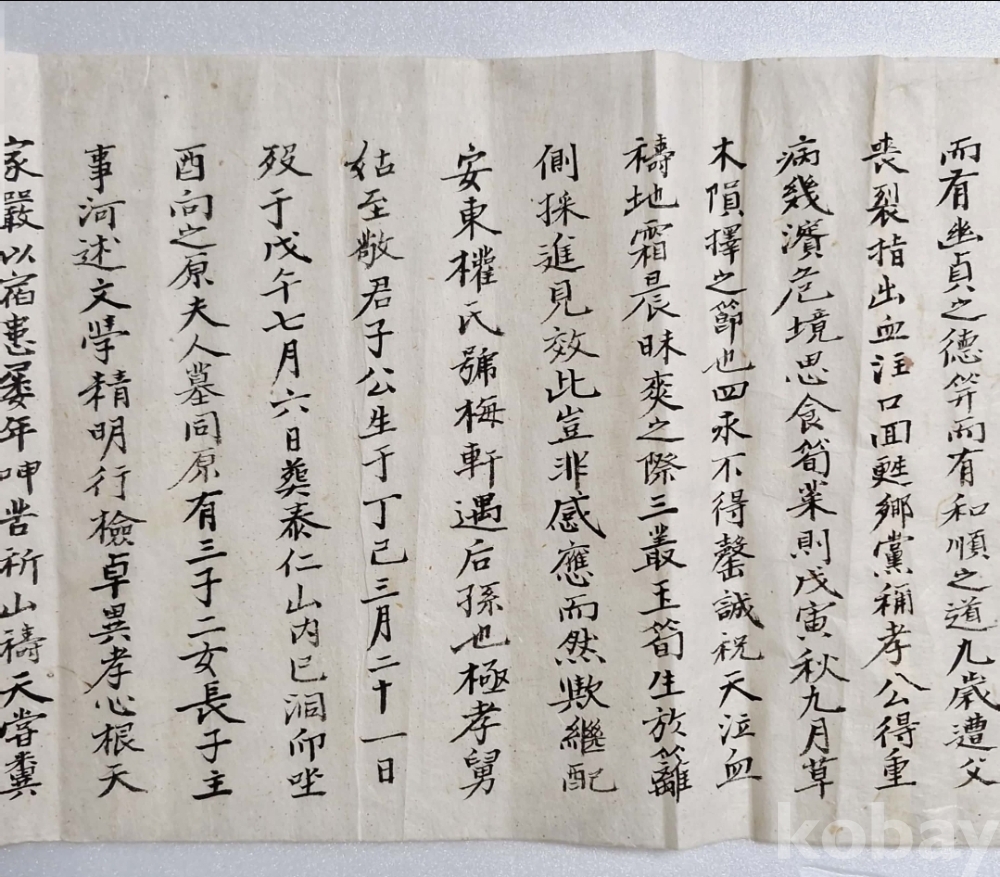 而有幽貞之德笄而有和順之道九歲遭父
喪裂指出血注口回甦鄉黨稱孝公得重
病幾濱危境思食筍菜則戊寅秋九月草
木隕擇之節也四求不得罄誠祝天泣血
禱地霜晨昧爽之際三叢玉筍生於籬
側採進見效此豈非感應而然歟繼配
安東權氏號梅軒遇后孫也極孝舅
姑至敬君子公生于丁巳三月二十一日
歿于戊午七月六日葬泰仁山內巳洞卯坐
酉向之原夫人墓同原有三子二女長子主
事河述文學精明行檢卓異孝心根天
家嚴以宿患屢年呻苦祈山禱天嘗糞
kobay